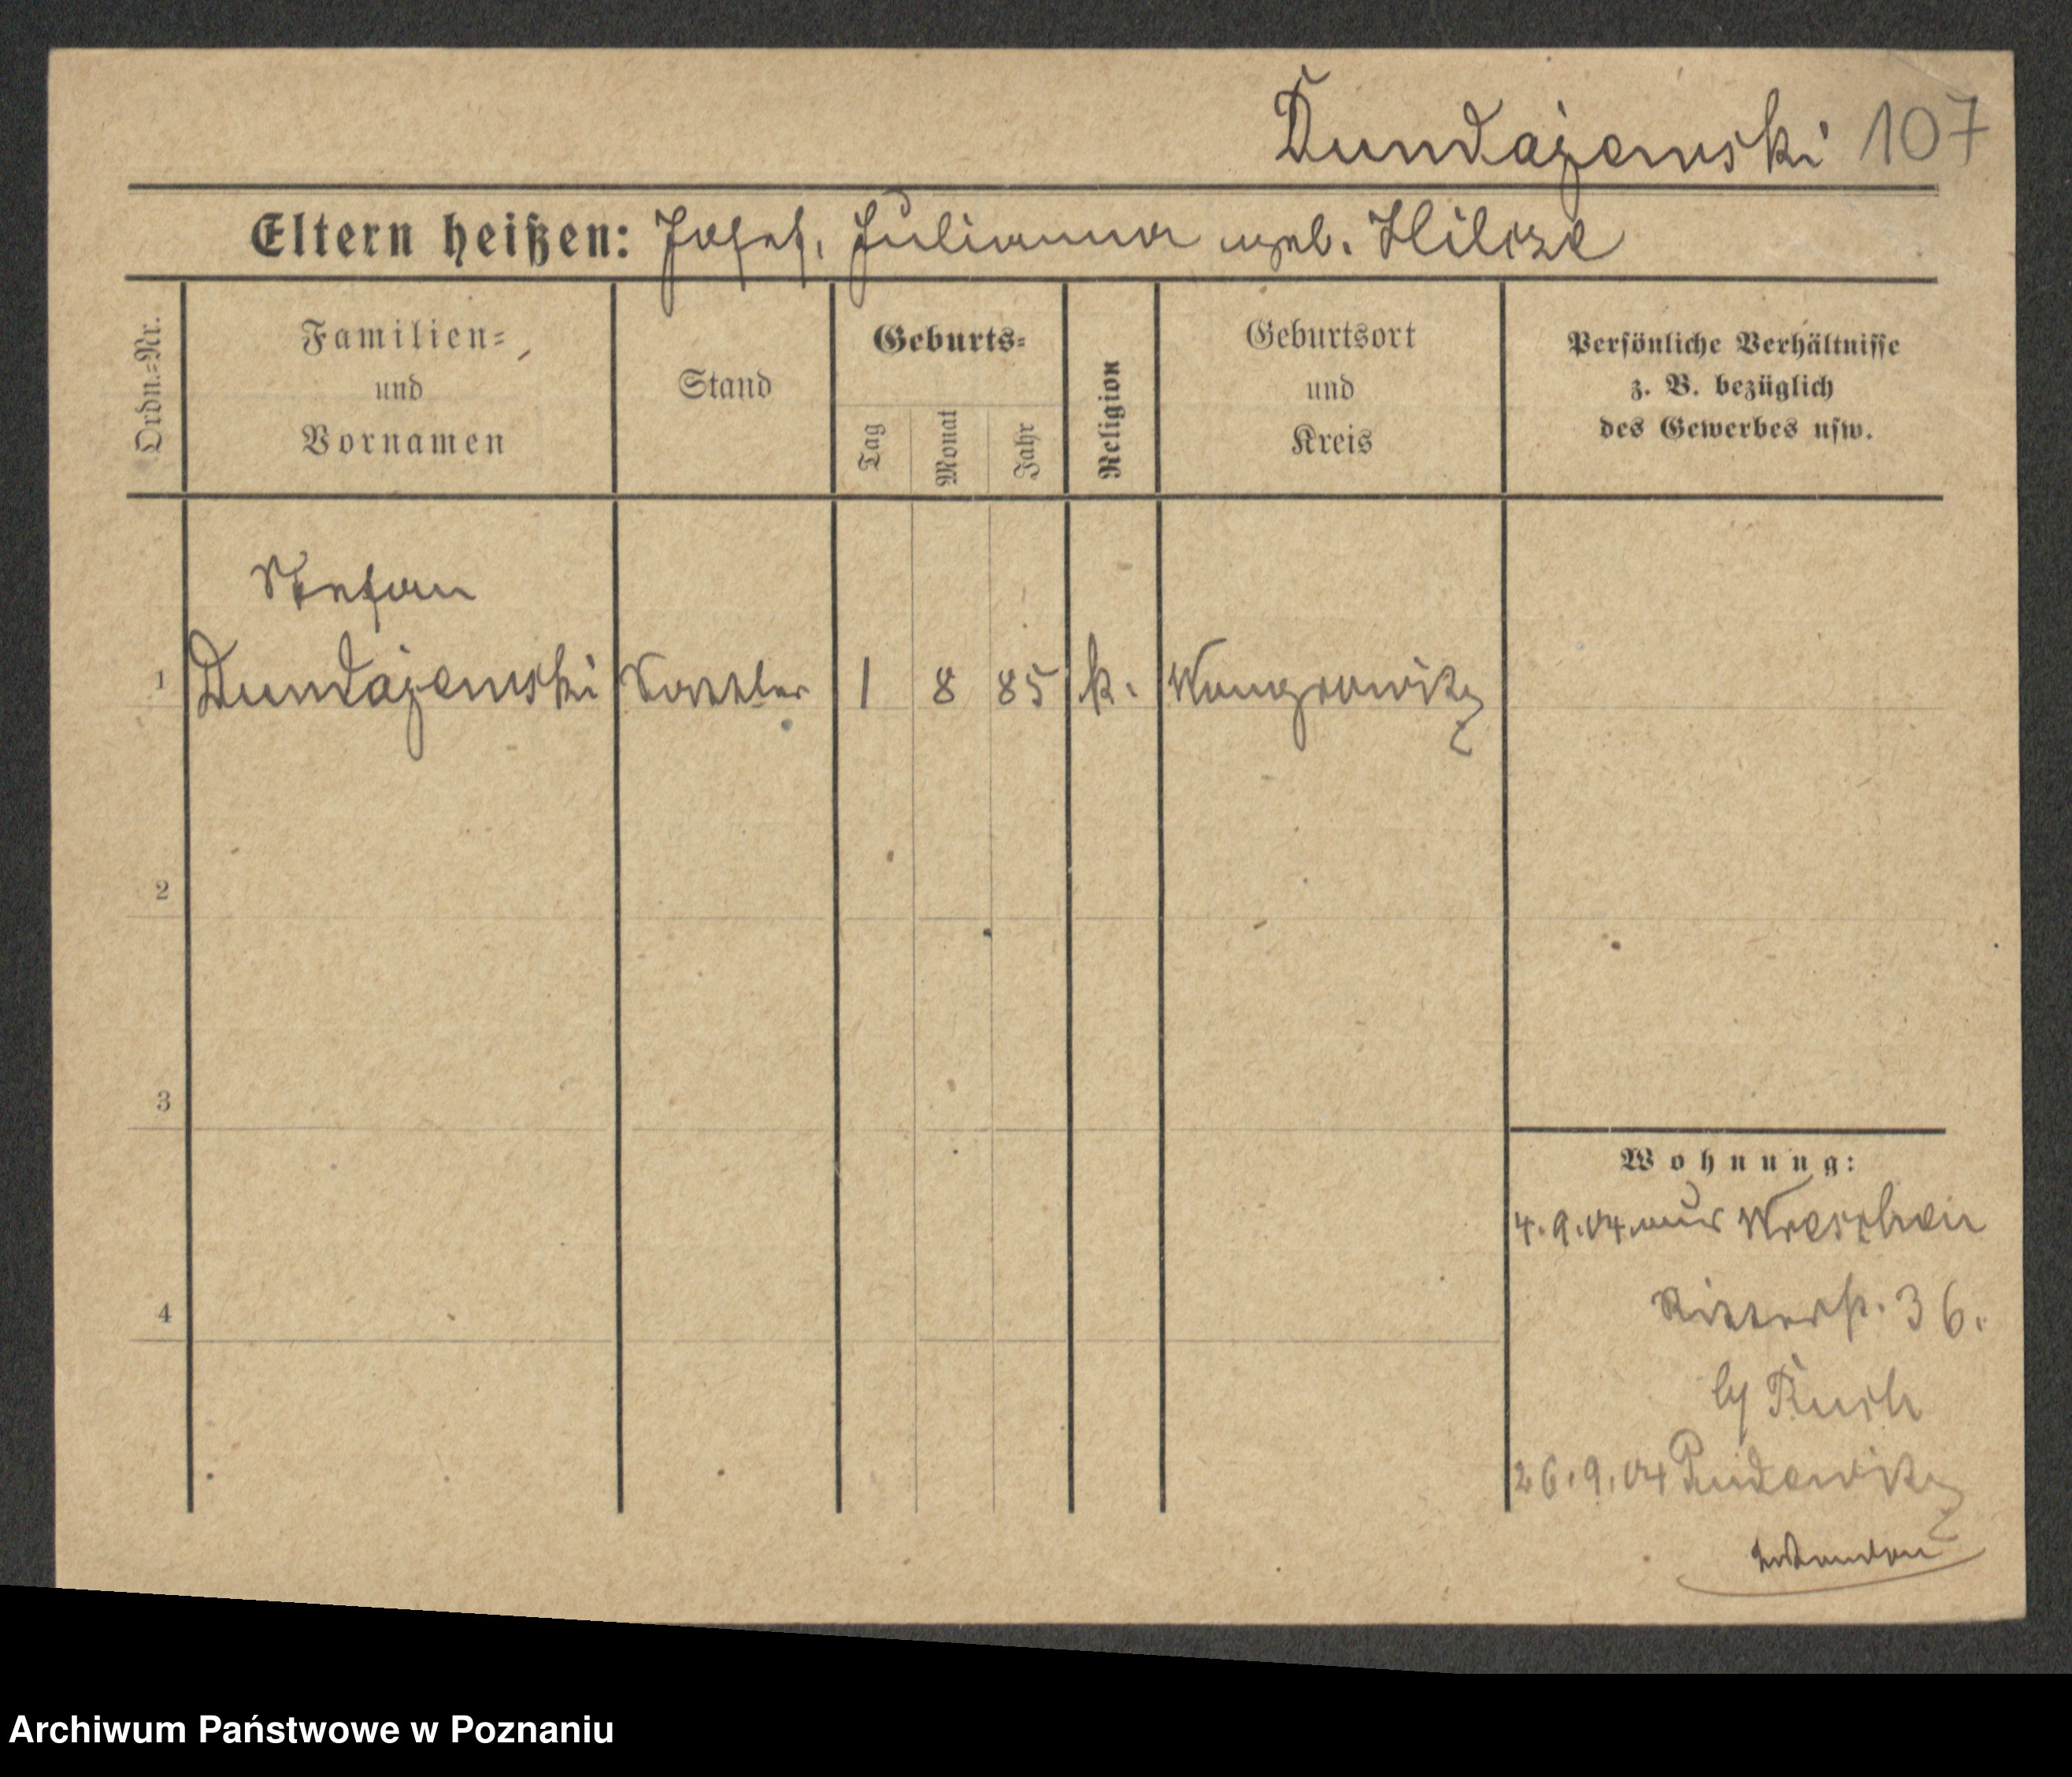 Dundajewski 107
Eltern heißen: Josef, Julianna geb. Hilcze
Ordn.-Nr.
Familien-
und
Vornamen
Stand
Geburts-
Tag
Monat
Jahr
Religion
Geburtsort
und
Kreis
Persönliche Verhältnisse
z. B. bezüglich
des Gewerbes usw.
Stefan
1 Dundajewski Sattler 1 8 85 k. Wongrowitz
2
3
4
Wohnung:
4.9.04 aus Wreschen
Ritterst. 36.
by
26.9.04 Pudewitz
Archiwum Państwowe w Poznaniu